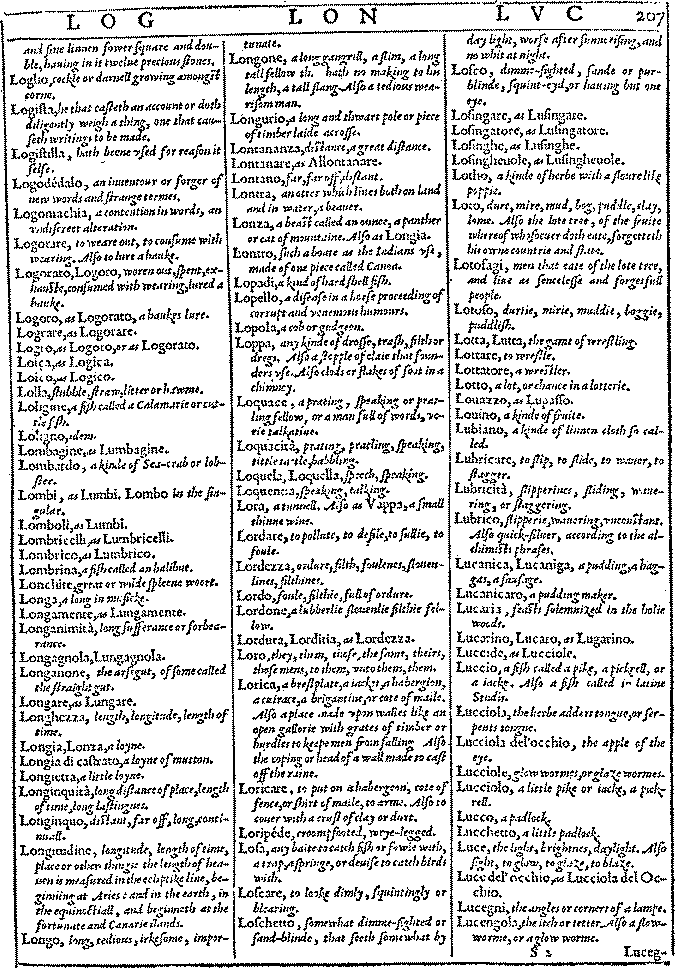 LOG LON LVC 207
and fine linnen fower square and dou-
ble, hauing in it twelue precious stones.
Loglio, cockle or darnell growing amongst
corne.
Logista, he that casteth an account or doth
diligently weigh a thing, one that cau-
seth writings to be made.
Logistilla, hath beene vsed for reason it
selfe.
Logodédalo, an inuentour or forger of
new words and strange termes.
Logomachia, a contention in words, an
vndiscreet altercation.
Logorare, to weare out, to consume with
wearing. Also to lure a hauke.
Logorato, Logoro, woren out, spent, ex-
hauste, consumed with wearing, lured a
hauke.
Logoro, as Logorato, a haukes lure.
Lograre, as Logorare.
Logro, as Logoro, or as Logorato.
Loica, as Logica.
Loico, as Logico.
Lolla, stubble, straw, litter or hawme.
Loligine, a fish called a Calamarie or cut-
tle fish.
Loligno, idem.
Lombagine, as Lumbagine.
Lombardo, a kinde of Sea-crab or lob-
ster.
Lombi, as Lumbi. Lombo is the sin-
gular.
Lomboli, as Lumbi.
Lombricelli, as Lumbricelli.
Lombrico, as Lumbrico.
Lombrina, a fish called an halibut.
Lonchite, great or wilde spleene woort.
Longa, a long in musicke.
Longamente, as Lungamente.
Longanimità, long sufferance or forbea-
rance.
Longagnola, Lungagnola.
Longanone, the arsgut, of some called
the straight gut.
Longare, as Lungare.
Longhezza, length, longitude, length of
time.
Longia, Lonza, a loyne.
Longia di castrato, a loyne of mutton.
Longietta, a little loyne.
Longinquità, long distance of place, length
of time, long lastingnes.
Longinquo, distant, far off, long, conti-
nuall.
Longitudine, longitude, length of time,
place or other things: the length of hea-
uen is measured in the ecliptike line, be-
ginning at Aries: and in the earth, in
the equinoctiall, and beginneth at the
fortunate and Canarie ilands.
Longo, long, tedious, irkesome, impor-
tunate.
Longone, a long gangrill, a slim, a long
tall fellow that hath no making to his
length, a tall slang. Also a tedious wea-
risom man.
Longurio, a long and thwart pole or piece
of timber laide acrosse.
Lontananza, distance, a great distance.
Lontanare, as Allontanare.
Lontano, far, far off, distant.
Lontra, an otter which liues both on land
and in water, a beauer.
Lonza, a beast called an ounce, a panther
or cat of mountaine. Also as Longia.
Lontro, such a boate as the Indians vse,
made of one piece called Canoa.
Lopadi, a kind of hard shell fish.
Lopello, a disease in a horse proceeding of
corrupt and venemous humours.
Lopola, a cob or gudgeon.
Loppa, any kinde of drosse, trash, filth or
dregs. Also a steeple of claie that foun-
ders vse. Also clods or flakes of soot in a
chimney.
Loquace, a prating, speaking or prat-
ling fellow, or a man full of words, ve-
rie talkatiue.
Loquacità, prating, pratling, speaking,
tittle tattle, babbling.
Loquela, Loquella, speech, speaking.
Loquenza, speaking, talking.
Lora, a tunnell. Also as Vappa, a small
thinne wine.
Lordare, to pollute, to defile, to sullie, to
foule.
Lordezza, ordure, filth, foulenes, slouen-
lines, filthines.
Lordo, foule, filthie, full of ordure.
Lordone, a lubberlie slouenlie filthie fel-
low.
Lordura, Lorditia, as Lordezza.
Loro, they, them, those, the same, theirs,
those mens, to them, vnto them, them.
Lorica, a brestplate, a iacket, a habergion,
a cuirace, a brigantine, or cote of maile.
Also a place made vpon walles like an
open gallorie with grates of timber or
hurdles to keepe men from falling. Also
the coping or head of a wall made to cast
off the raine.
Loricare, to put on a habergeon, cote of
fence, or shirt of maile, to arme. Also to
couer with a crust of clay or durt.
Loripéde, croompfooted, wrye-legged.
Losa, any baite to catch fish or fowle with,
a trap, a springe, or deuise to catch birds
with.
Loscare, to looke dimly, squintingly or
blearing.
Loschetto, somewhat dimme-sighted or
sand-blinde, that seeth somewhat by
day light, worse after sunne rising, and
no whit at night.
Losco, dimme-sighted, sande or pur-
blinde, squint-eyd, or hauing but one
eye.
Losingare, as Lusingare.
Losingatore, as Lusingatore.
Losinghe, as Lusinghe.
Losingheuole, as Lusingheuole.
Lotho, a kinde of herbe with a floure like
poppie.
Loto, durt, mire, mud, bog, puddle, clay,
lome. Also the lote tree, of the fruite
whereof whosoeuer doth eate, forgetteth
his owne countrie and state.
Lotofagi, men that eate of the lote tree,
and liue as sencelesse and forgetfull
people.
Lotoso, durtie, mirie, muddie, boggie,
puddlish.
Lotta, Lutta, the game of wrestling.
Lottare, to wrestle.
Lottatore, a wrestler.
Lotto, a lot, or chance in a lotterie.
Louazzo, as Lupasso.
Louino, a kinde of fruite.
Lubiano, a kinde of linnen cloth so cal-
led.
Lubricare, to slip, to slide, to wauer, to
stagger.
Lubricità, slipperines, sliding, waue-
ring, or staggering.
Lubrico, slipperie, wauering, vnconstant.
Also quick-siluer, according to the al-
chimists phrases.
Lucanica, Lucaniga, a pudding, a hag-
gas, a sausage.
Lucanicaro, a pudding maker.
Lucaria, feasts solemnized in the holie
woods.
Lucarino, Lucaro, as Lugarino.
Luccide, as Lucciole.
Luccio, a fish called a pike, a pickrell, or
a iacke. Also a fish called in latine
Studis.
Lucciola, the herbe adders toongue, or ser-
pents tongue.
Lucciola del'occhio, the apple of the
eye.
Lucciole, glow wormes, or glaze wormes.
Lucciolo, a little pike or iacke, a pick-
rell.
Lucco, a padlock.
Lucchetto, a little padlock.
Luce, the light, brightnes, daylight. Also
sight, to glow, to glaze, to blaze.
Luce del'occhio, as Lucciola del Oc-
chio.
Lucegni, the angles or corners of a lampe.
Lucengola, the itch or tetter. Also a slow-
worme, or a glow worme.
S 2 Luceg-